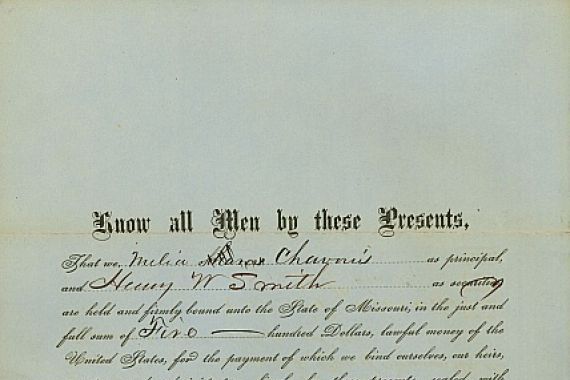 Know all Men by these Presents,
That we, Melia Chavouis as principal,
and Henry W Smith as security
are held and firmly bound unto the State of Missouri, in the just and
full sum of Five hundred Dollars, lawful money of the
United States, for the payment of which we bind ourselves, our heirs,